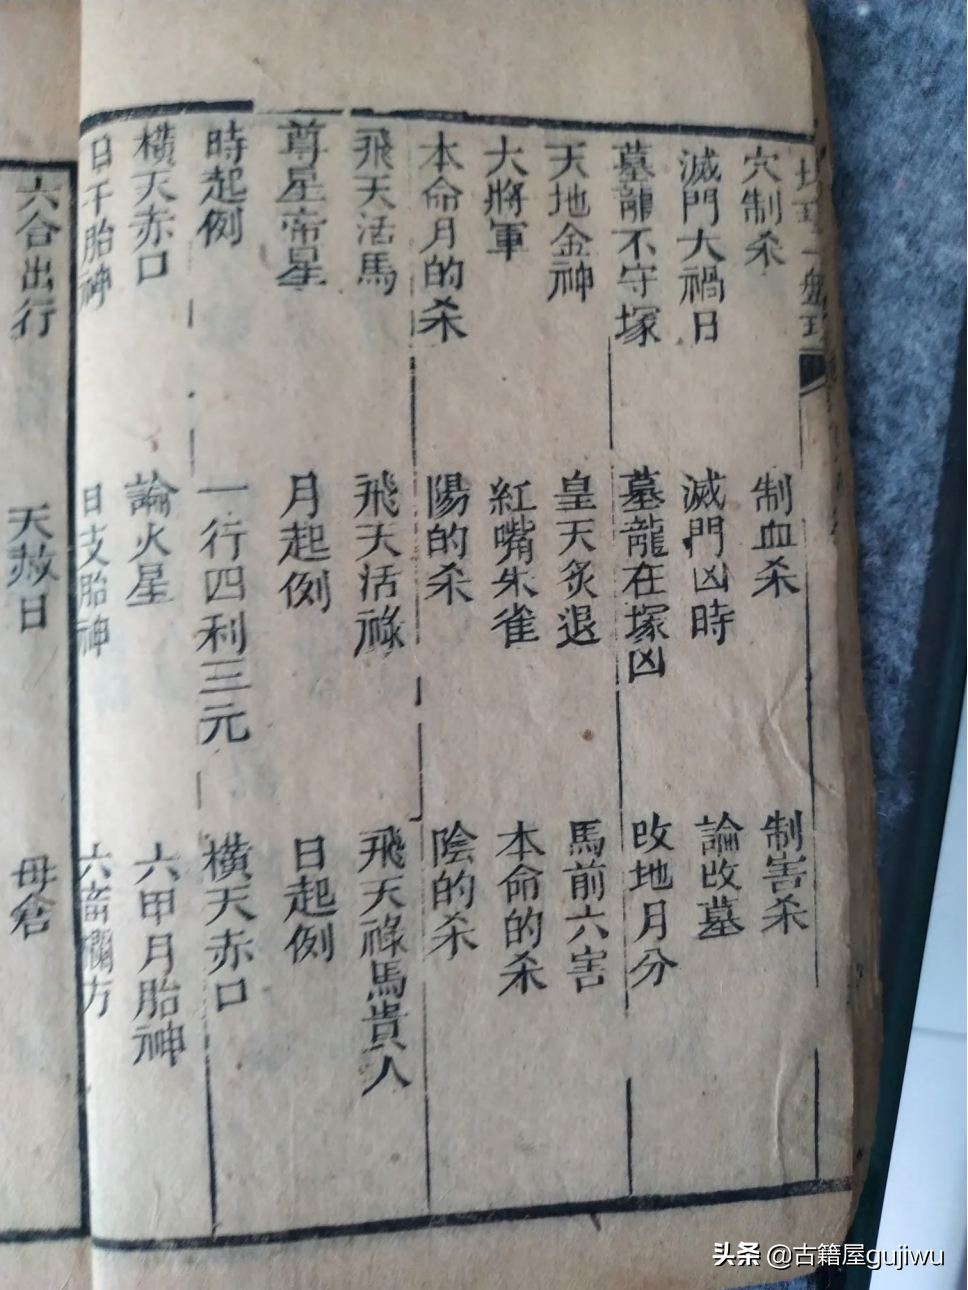 穴制杀 制血杀 制害杀
滅門大禍日 滅門凶時 論改墓
墓龍不守塚 墓龍在塚凶 改地月分
天地金神 皇天炙退 馬前六害
大將軍 紅嘴朱雀 本命的杀
本命月的杀 陽的杀 陰的杀
飛天活馬 飛天活祿 飛天祿馬貴人
尊星帝星 月起例 日起例
時起例 一行四利三元 橫天赤口
橫天赤口 論火星 六甲月胎神
日干胎神 日支胎神 六畜欄方
六合出行 天赦日 母倉
头条 @古籍屋gujiwu